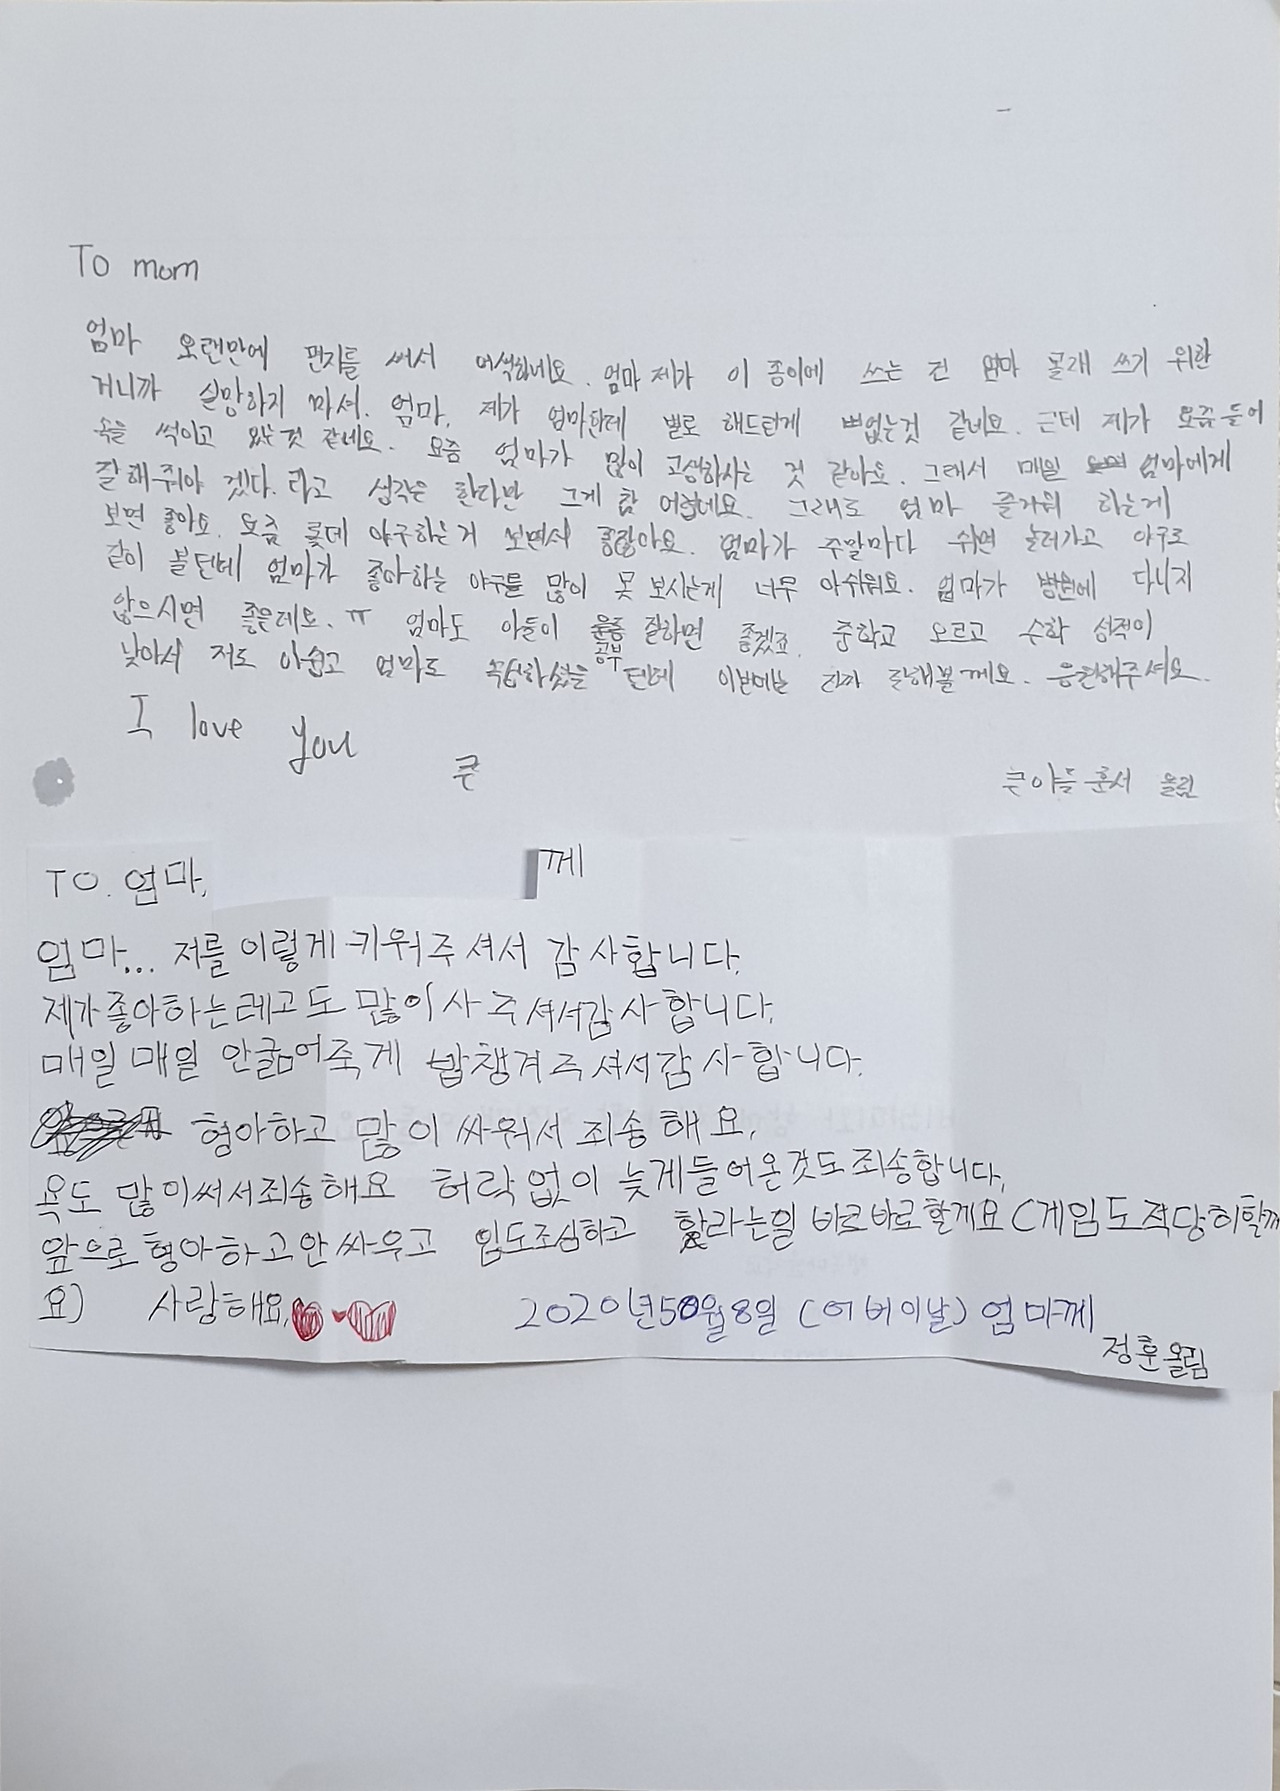 To mom
엄마 오랜만에 편지를 써서 어색하네요. 엄마 제가 이 종이에 쓰는 건 엄마 몰래 쓰기 위한
거니까 실망하지 마셔. 엄마, 제가 엄마한테 별로 해드린게 없는것 같네요. 근데 제가 요즘들어
속을 썩이고 있는것 같네요. 요즘 엄마가 많이 고생하시는 것 같아요. 그래서 매일 엄마에게
잘해줘야 겠다. 라고 생각은 한다만 그게 참 어렵네요. 그래도 엄마 즐거워 하는게
보면 좋아요. 요즘 롯데 야구하는거 보면서 좋잖아요. 엄마가 주말마다 쉬면 놀러가고 야구도
같이 볼텐데 엄마가 좋아하는 야구를 많이 못 보시는게 너무 아쉬워요. 엄마가 병원에 다니지
않으시면 좋을테요. ㅠ 엄마도 아들이 공부 잘하면 좋겠죠. 중학교 오르고 수학 성적이
낮아서 저도 아쉽고 엄마도 속상하셨을 텐데 이번에는 진짜 잘해볼께요. 응원해주셔요.
I love you
큰
큰아들 훈서 올림
TO. 엄마, 께
엄마... 저를 이렇게 키워주셔서 감사합니다.
제가좋아하는레고도 많이사주셔서감사합니다.
매일매일 안굶어죽게 밥챙겨주셔서감사합니다.
형아하고 많이싸워서 죄송해요.
욕도 많이써서죄송해요 허락없이 늦게들어온것도죄송합니다.
앞으로형아하고안싸우고 입도조심하고 하라는일 바로바로할게요(게임도적당히할께
요) 사랑해요.
2020년5월8일 (어버이날) 엄마께
정훈올림